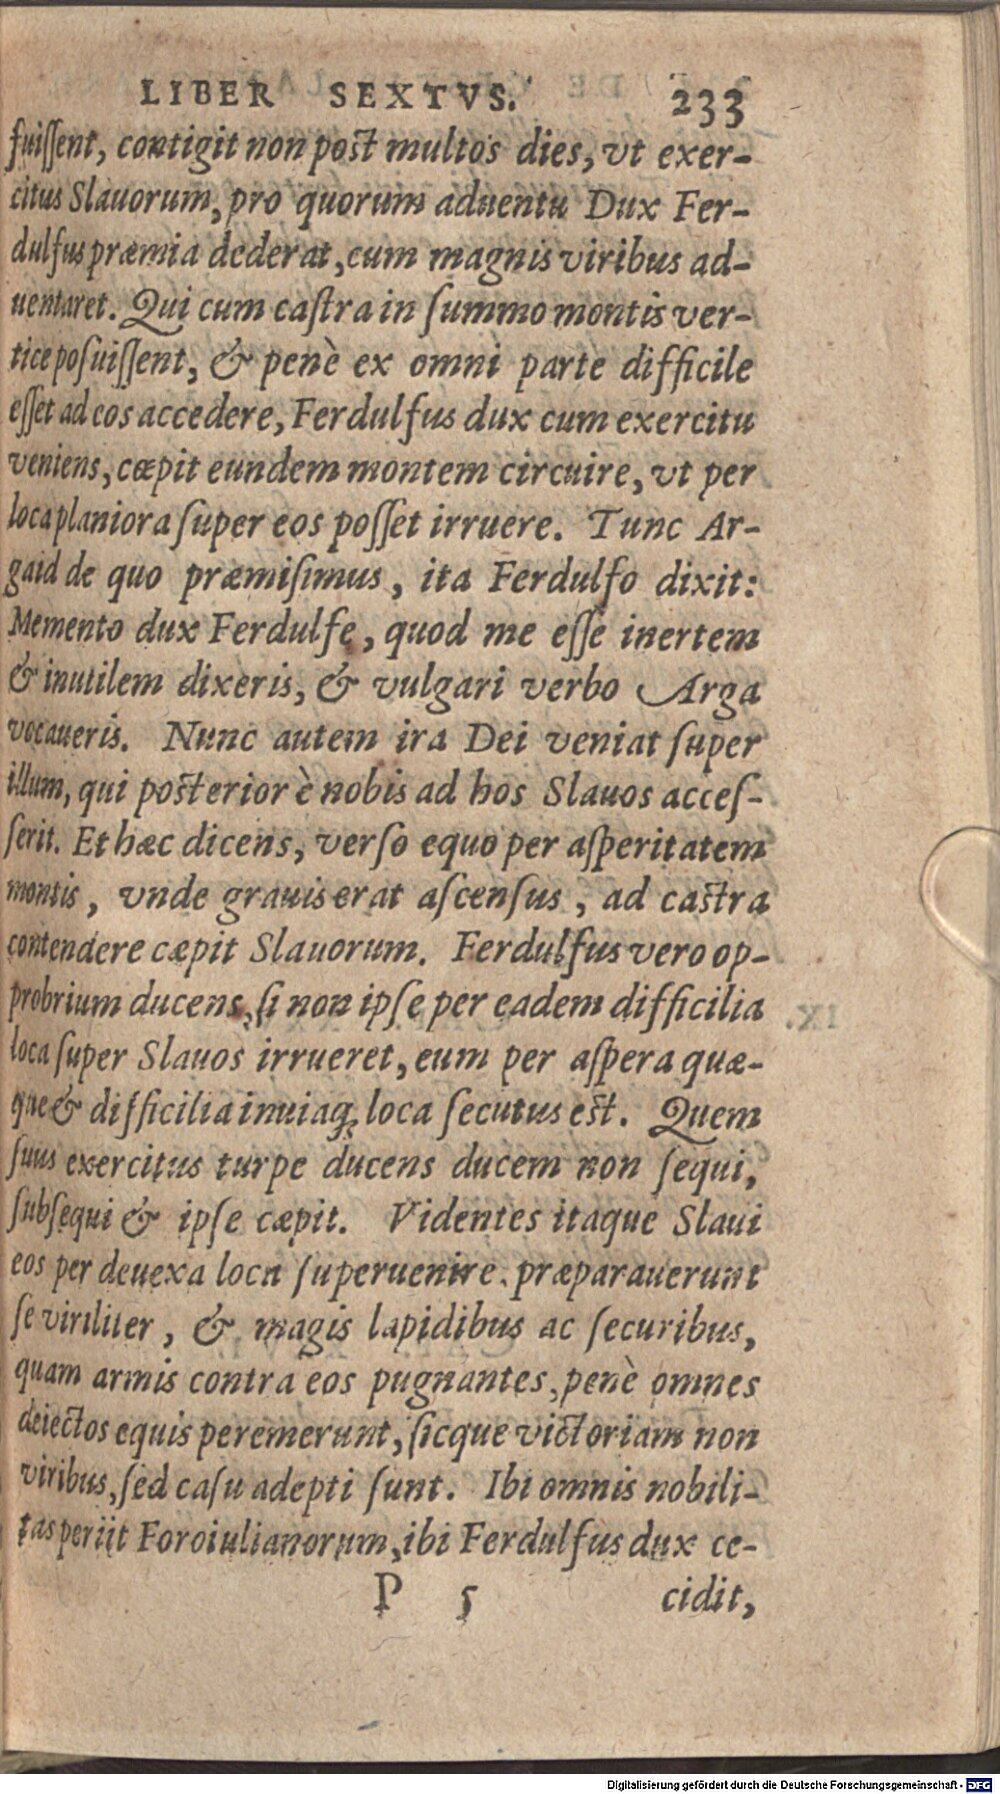 LIBER SEXTVS. 233
fuiſſent, contigit non post multos dies, vt exer-
citus Slauorum, pro quorum aduentu Dux Fer-
dulfus præmia dederat, cum magnis viribus ad-
uentaret. Qui cum caſtra in ſummo montis ver-
tice poſuiſſent, & penè ex omni parte difficile
eſſet ad eos accedere, Ferdulfus dux cum exercitu
veniens, cœpit eundem montem circuire, vt per
loca planiora ſuper eos poſſet irruere. Tunc Ar-
gaid de quo præmiſimus, ita Ferdulfo dixit:
Memento dux Ferdulfe, quod me eſſe inertem
& inutilem dixeris, & vulgari verbo Arga
vocaueris. Nunc autem ira Dei veniat ſuper
illum, qui posterior è nobis ad hos Slauos acceſ-
ſerit. Et hæc dicens, verſo equo per aſperitatem
montis, vnde grauis erat aſcenſus, ad castra
contendere cœpit Slauorum. Ferdulfus vero op-
probrium ducens, ſi non ipſe per eadem difficilia
loca ſuper Slauos irrueret, eum per aſpera quæ-
que & difficilia inuiaq; loca ſecutus est. Quem
ſuus exercitus turpe ducens ducem non ſequi,
ſubſequi & ipſe cæpit. Videntes itaque Slaui
eos per deuexa loca ſuperuenire, præparauerunt
ſe viriliter, & magis lapidibus ac ſecuribus,
quam armis contra eos pugnantes, penè omnes
deiectos equis peremerunt, ſicque victoriam non
viribus, ſed caſu adepti ſunt. Ibi omnis nobili-
tas periit Foroiulianorum, ibi Ferdulfus dux ce-
P 5 cidit,
IX.
Digitalisierung gefördert durch die Deutsche Forschungsgemeinschaft - DFG